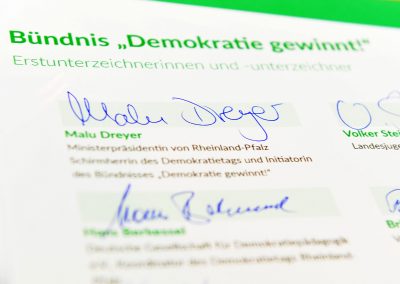 Bündnis „Demokratie gewinnt!“
Erstunterzeichnerinnen und -unterzeichner
Malu Dreyer
Malu Dreyer
Ministerpräsidentin von Rheinland-Pfalz
Schirmherrin des Demokratietags und Initiatorin
des Bündnisses „Demokratie gewinnt!“
Volker Stei
Landesjuge
Hans Berkessel
Deutsche Gesellschaft für Demokratiepädagogik
e.V., Koordinator des Demokratietags Rheinland-
Pfalz